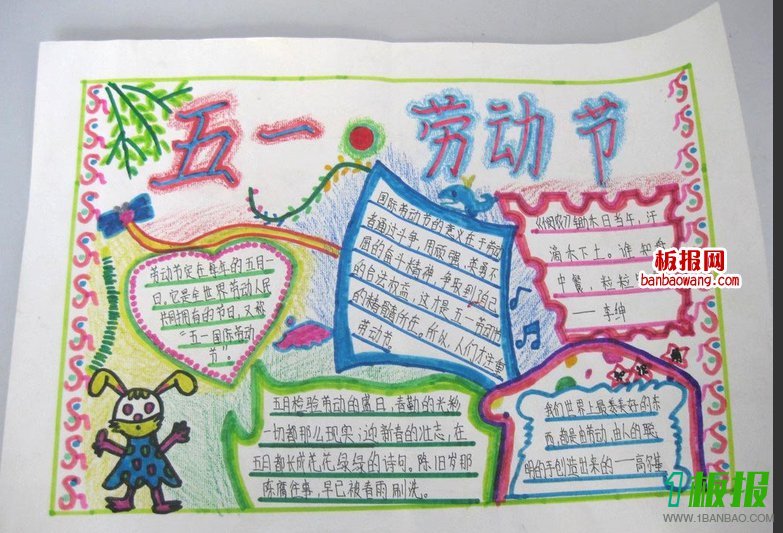 五一 劳动节
劳动节定在每年的五月一
日,它是全世界劳动人民
共同拥有的节日,又称
"五一国际劳动
节"。
国际劳动节的意义在于劳动
者通过斗争,用顽强、英勇不
屈的奋斗精神,争取到了自己
的合法权益,这
的精髓所在。所以,人们才注重
劳动节
锄禾日当午,汗
滴禾下土。谁知
中餐,粒粒
——李绅
板报网
banbaowang.com
五月检验劳动的盛日,春勤的光
一切都那么现实;迎新春的壮志,在
五月都长成花花绿绿的诗句。陈旧岁那
陈腐往事,早已被春雨刷洗。
我们世界上最美好的东
西,都是由劳动、由人的聪
明的手创造出来的——高尔基
1板报
WWW.1BANBAO.COM